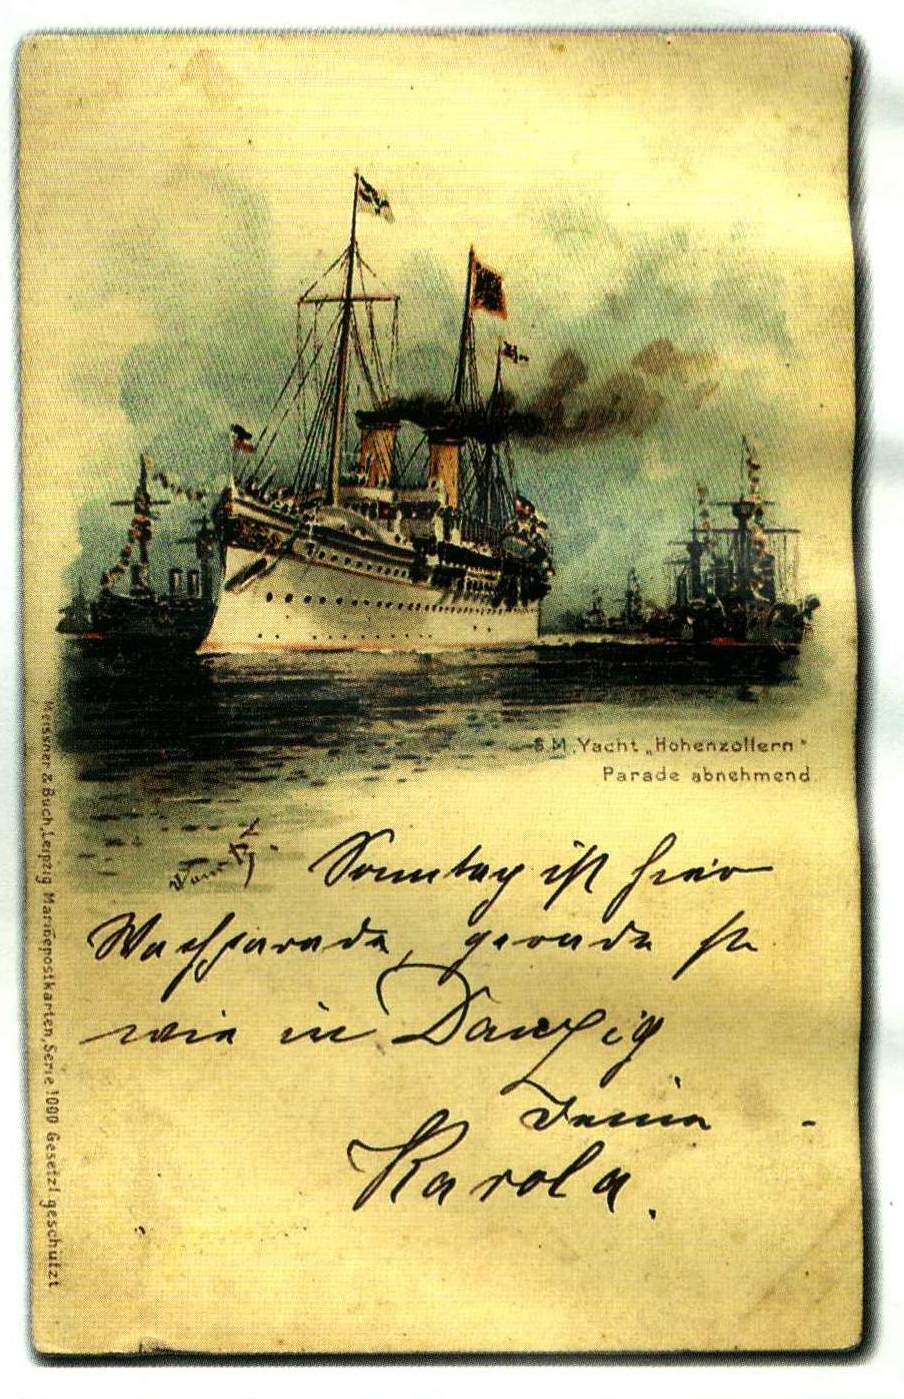 S.M. Yacht „Hohenzollern"
Parade abnehmend.
Sonntag ist hier
Wachparade, gerade so
wie in Danzig
Deine -
Karola.
Meissner & Buch, Leipzig Marinepostkarten, Serie 1000 Gesetzl geschützt